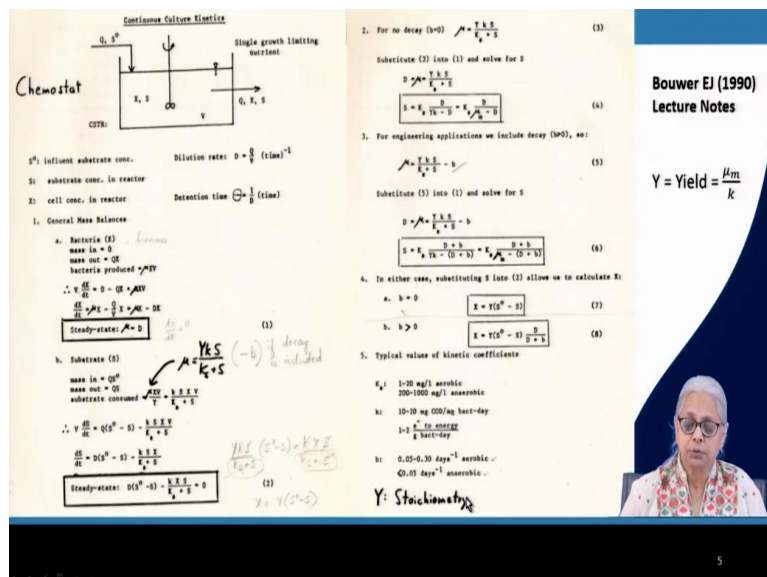 Continuous Culture Kinetics
Q, S⁰
Single growth limiting
nutrient
Chemostat
X, S
Q, X, S
V
CSTR:
S⁰: influent substrate conc.
Dilution rate: D = Q/V (time)⁻¹
S: substrate conc. in reactor
X: cell conc. in reactor
Detention time θ = 1/D (time)
1. General Mass Balances
a. Bacteria (X) , biomass
mass in = 0
mass out = QX
bacteria produced = μXV
∴ V dX/dt = 0 - QX + μXV
dX/dt = μX - Q/V X = μX - DX
Steady-state: μ = D
dX/dt = 0
(1)
μ = YkS/(Ks + S) (-b) if decay is included
b. Substrate (S)
mass in = QS⁰
mass out = QS
substrate consumed = μXV/Y = k S X V/(Ks + S)
∴ V dS/dt = Q(S⁰ - S) - k S X V/(Ks + S)
dS/dt = D(S⁰ - S) - k S X/(Ks + S)
Steady-state: D(S⁰ - S) - k X S/(Ks + S) = 0
(2)
YkS/(Ks+S) (S⁰-S) = K X S/(Ks+S)
X = Y(S⁰-S)
2. For no decay (b=0) μ = Y k S/(Ks + S) (3)
Substitute (3) into (1) and solve for S
D = μ = Y k S/(Ks + S)
S = Ks D/(Yk - D) = Ks D/(μm - D) (4)
3. For engineering applications we include decay (b>0), so:
μ = Y k S/(Ks + S) - b (5)
Substitute (5) into (1) and solve for S
D = μ = Y k S/(Ks + S) - b
S = Ks (D + b)/(Yk - (D + b)) = Ks (D + b)/(μm - (D + b)) (6)
4. In either case, substituting S into (2) allows us to calculate X:
a. b = 0 X = Y(S⁰ - S) (7)
b. b > 0 X = Y(S⁰ - S) D/(D + b) (8)
5. Typical values of kinetic coefficients
Ks: 1-20 mg/l aerobic
200-1000 mg/l anaerobic
k: 10-20 mg COD/mg bact-day
1-2 e⁻ to energy/g bact-day
b: 0.05-0.30 days⁻¹ aerobic
<0.05 days⁻¹ anaerobic
Y: Stoichiometry
Bouwer EJ (1990)
Lecture Notes
Y = Yield = μm/k
5